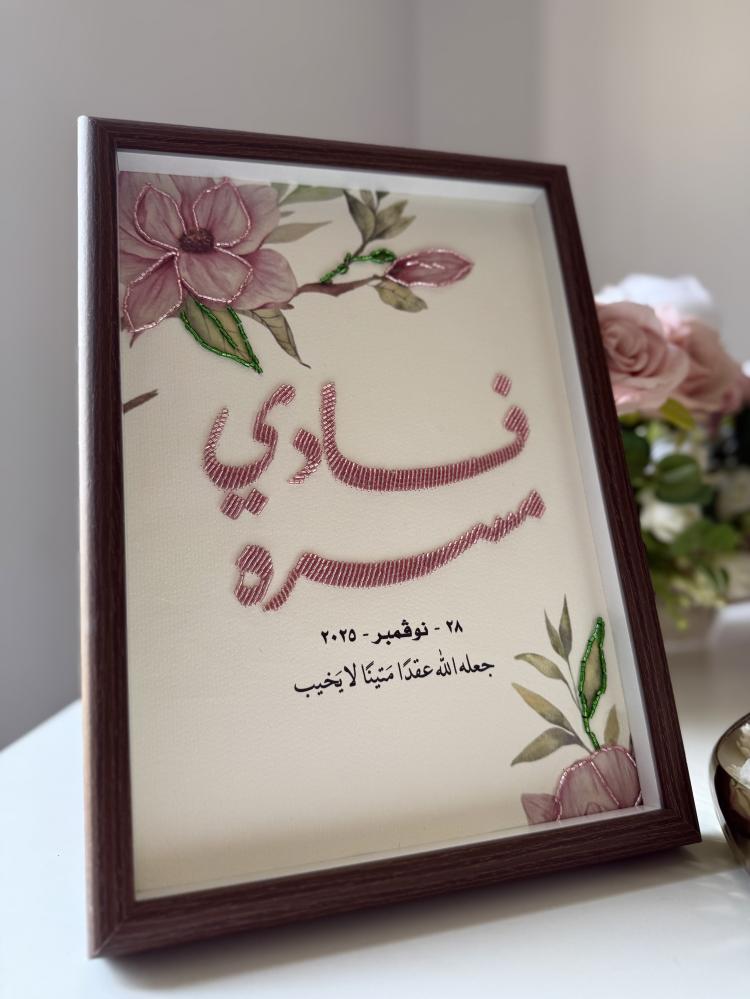 فادي
مسره
٢٨ - نوڤمبر - ٢٠٢٥
جعله الله عقدًا مَتينًا لا يَخيب